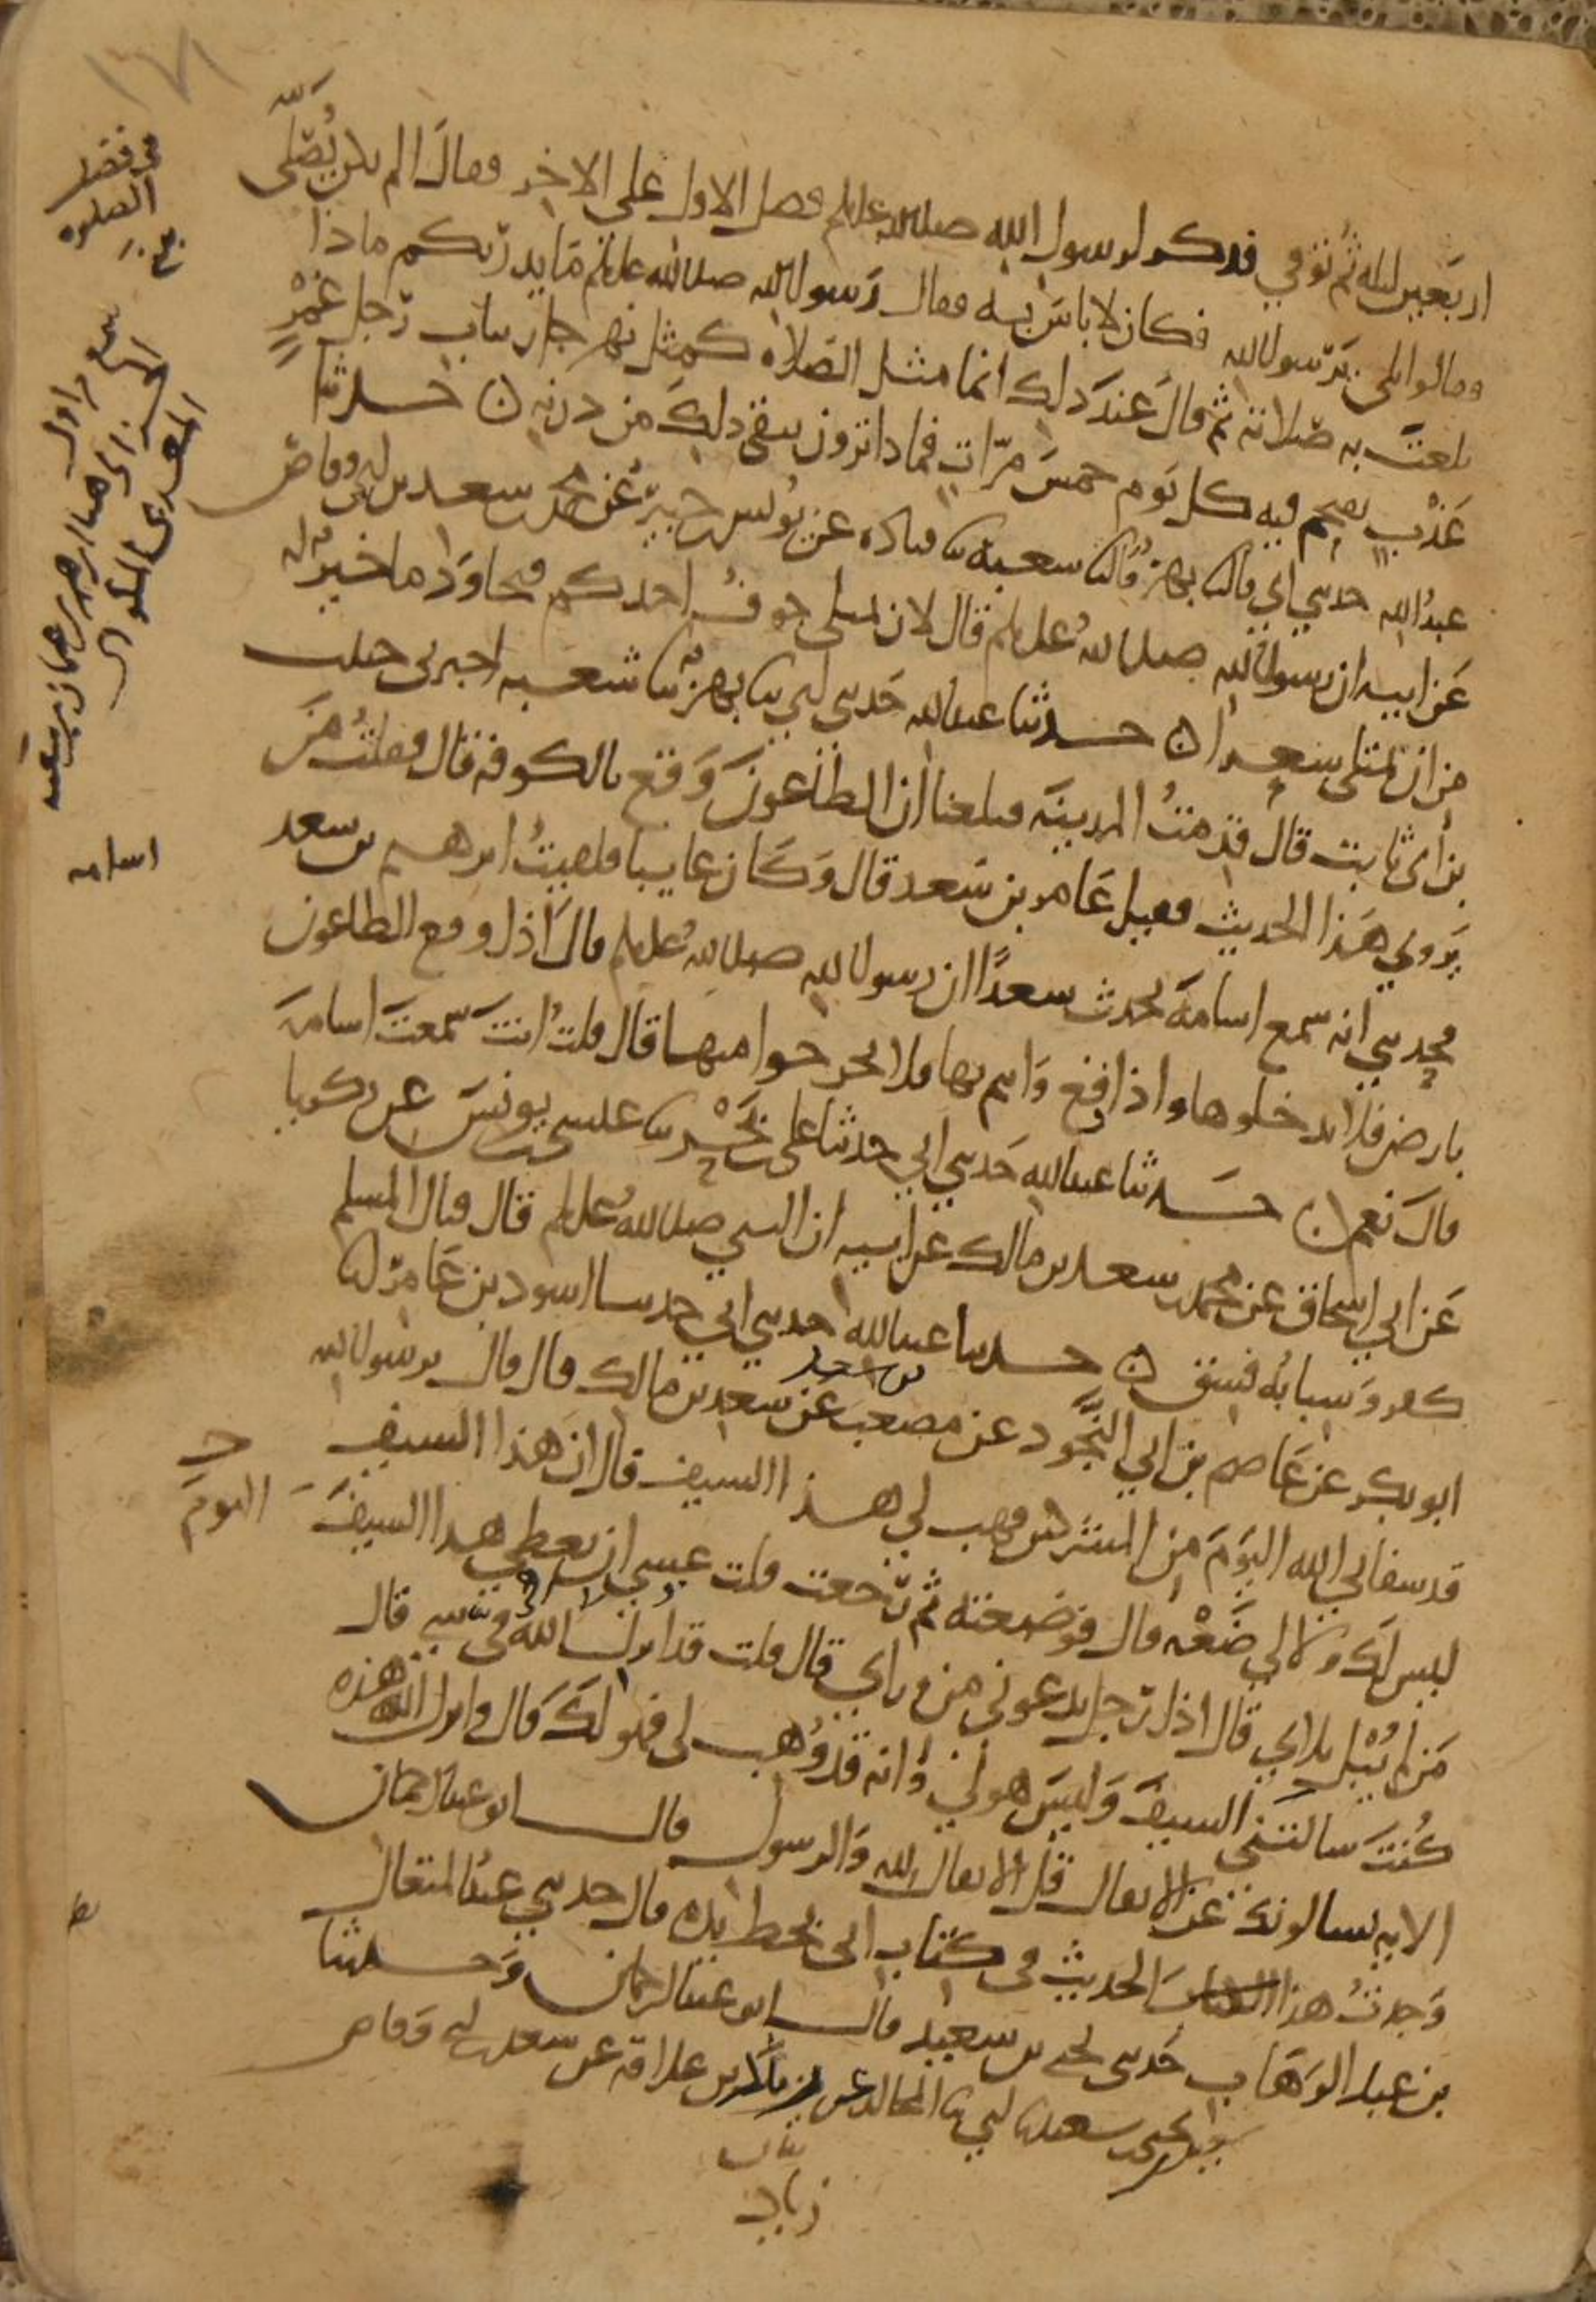 اربعين ليله ثم توفي فذكر لرسول الله صلى الله عليه وسلم فضل الاول على الاخر فقال الم يكن يُصَلّى
فقالوا بلى يرسول الله فكان لا باس به فقال رسول الله صلى الله عليه وسلم ما يدريكم ماذا
بلغت به صلاته ثم قال عند ذلك انما مثل الصلاه كمثل نهر جار بباب رجل غَمْرٍ
عَذْبٍ يقتحم فيه كل يوم خمس مرّاتٍ فماذا ترون يبقى ذلك من درنه ن حدثنا
عبدُ الله حدثني ابي قال ثنا بهز قال ثنا شعبه ثنا قتاده عن يونس بن جبير عن محمد بن سعد بن ابي وقاص
عن ابيه ان رسول الله صلى الله عليه وسلم قال لان يمتلى جوف احدكم قيحا ودما خيرٌ له
من ان يمتلى شعرا ن حدثنا عبد الله حدثني ابي ثنا بهزٌ ثنا شعبه اخبرنى حبيب
بن ابى ثابت قال قدمتُ المدينه فبلغنا ان الطاعون وَقع بالكوفه قال فقلتُ مَن
يروي هذا الحديث فقيل عامر بن سعد قال وكان غايبا فلقيتُ ابرهيم بن سعد
فحدثني انه سمع اسامة يحدث سعدًا ان رسول الله صلى الله عليه وسلم قال اذا وقع الطاعون
بارض فلا تدخلوها واذا وقع وانتم بها فلا تخرجوا منها قال قلتُ انتَ سمعتَ اسامة
قال نعم ن حدثنا عبد الله حدثني ابي حدثنا على بن بَحْرٍ ثنا عيسى بن يونس عن زكريا
عن ابي اسحاق عن محمد بن سعد بن مالك عن ابيه ان النبي صلى الله عليه وسلم قال قتال المسلم
كفر وسبابُه فسق ن حدثنا عبد الله حدثني ابي حدثنا اسود بن عامر انا
ابو بكر عن عاصم بن ابي النَّجُود عن مصعب بن سعد عن سعد بن مالك قال قال يرسول الله
قد شفاني الله اليومَ من المشركين فهب لي هذا السيف قال ان هذا السيف
ليس لك ولا لي ضَعْه قال فوضعته ثم رجعت قلت عسى ان يعطى هذا السيفَ اليومَ
من لم يُبْلِ بلاي قال اذا رجل يدعوني من وراي قال قلت قد انزل الله فيّ شي قال
كُنتَ سالتني السيفَ وليس هو لي وانه قد وُهب لى فهو لكَ قال وانزل الله هذه
الايه يسالونك عن الانفال قل الانفال لله والرسول قال ابو عبد الرحمان
وَجدتُ هذا الحديث فى كتاب ابى بخط يده قال حدثني عبدُ المتعال
بن عبد الوهاب حدثنى يحيى بن سعيد قال ابو عبد الرحمان وحدثنا
سعيد بن يحيى بن سعيد ثنا ابي ثنا المجالد عن زياد بن علاقه عن سعد بن ابي وقاص
بيان
زياد
فى فضل
الصلوه
اسامه